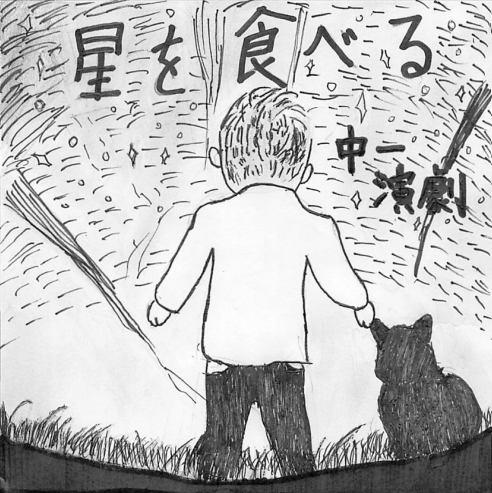 星を食べる
中一
演劇